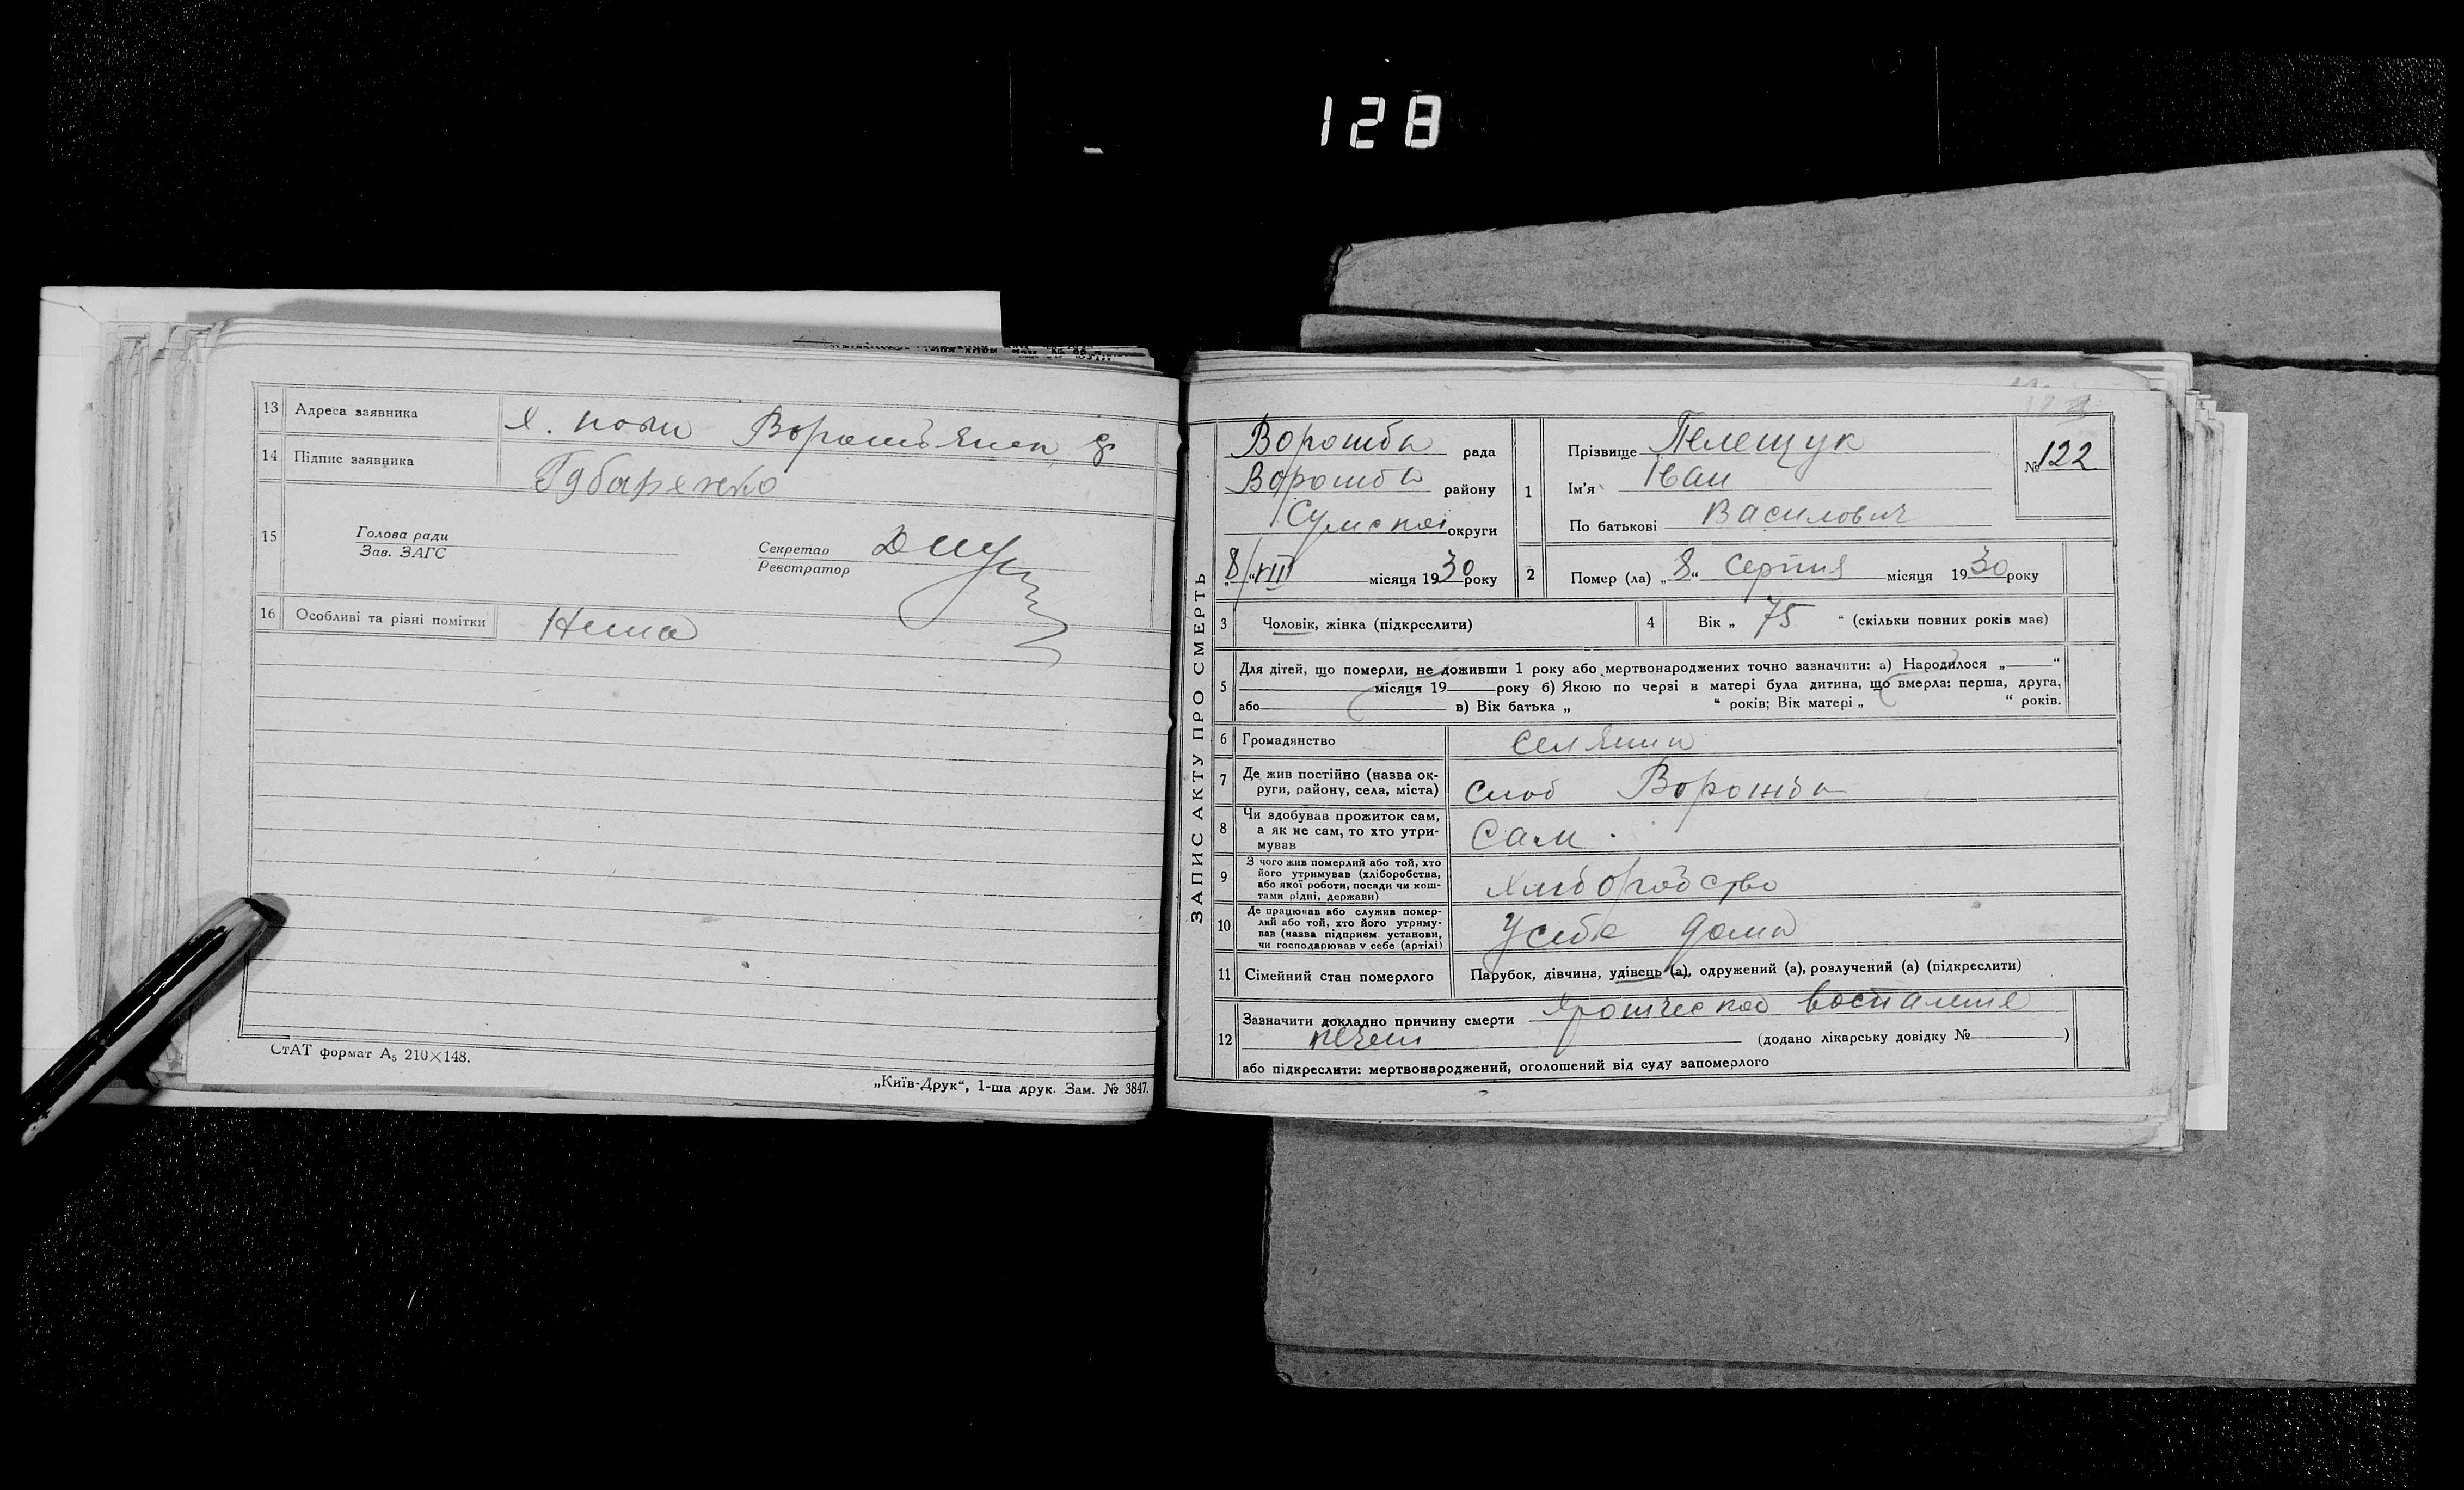 128
13 Адреса заявника х. поли Ворожбянск
14 Підпис заявника Губаренко
15 Голова ради
Зав. ЗАГС
Секретар
Реєстратор
16 Особливі та різні помітки Нима
СтАТ формат А₅ 210×148.
„Київ-Друк“, 1-ша друк. Зам. № 3847.
ЗАПИС АКТУ ПРО СМЕРТЬ
Ворожба рада
Ворожба району
Сумской округи
„8/“ VIII місяця 1930 року
1 Прізвище Пелещук
Ім'я Іван
По батькові Василович
№ 122
2 Помер (ла) „8“ Серпня місяця 1930 року
3 Чоловік, жінка (підкреслити)
4 Вік „ 75 “ (скільки повних років має)
5 Для дітей, що померли, не доживши 1 року або мертвонароджених точно зазначити: а) Народилося „ “
місяця 19 року б) Якою по черзі в матері була дитина, що вмерла: перша, друга,
або в) Вік батька „ “ років; Вік матері „ “ років.
6 Громадянство селянин
7 Де жив постійно (назва ок-
руги, району, села, міста) слоб Ворожба
8 Чи здобував прожиток сам,
а як не сам, то хто утри-
мував Сам.
9 З чого жив померлий або той, хто
його утримував (хліборобства,
або якої роботи, посади чи кош-
тами рідні, держави) хлiборобство
10 Де працював або служив помер-
лий або той, хто його утриму-
вав (назва підприєм. установи,
чи господарював у себе (артілі) У себе дома
11 Сімейний стан померлого Парубок, дівчина, удівець (а), одружений (а), розлучений (а) (підкреслити)
12 Зазначити докладно причину смерти Хроническое воспаление
печени (додано лікарську довідку № )
або підкреслити: мертвонароджений, оголошений від суду запомерлого